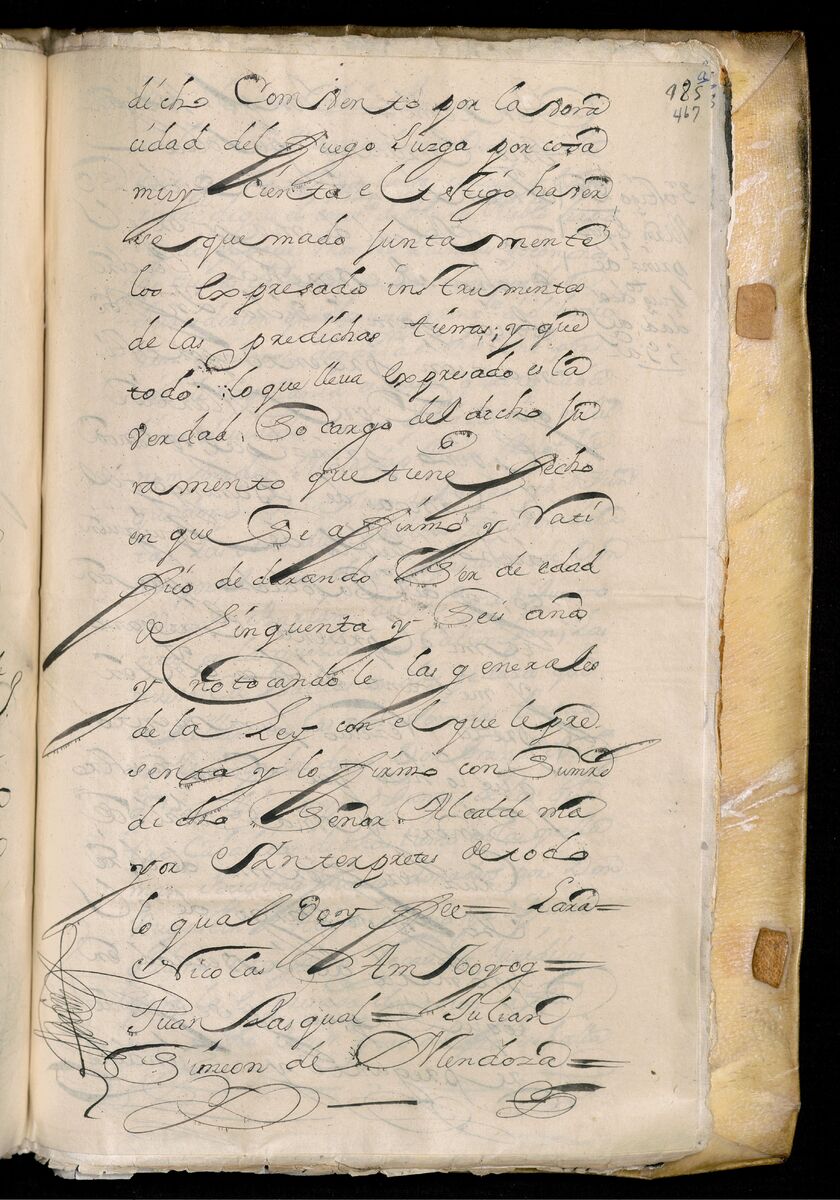 485
467
dicho Comvento por la vora
cidad del fuego Juzga por cosa
muy cierta el testigo haver
se quemado juntamente
los expresados instrumentos
de las predichas tierras; y que
todo lo que lleva expresado es la
verdad So cargo del dicho ju
ramento que tiene fecho
en que Se afirmó y rati
ficó declarando Ser de edad
de Sinquenta y Seis años
y no tocandole las generales
de la Ley con el que le pre
senta y lo firmó con Sumrd
dicho Señor Alcalde ma
yor e Ynterpretes de todo
lo qual doy fee = Lara =
Nicolas =
Juan Pasqual = Julian
Simeon de Mendoza =